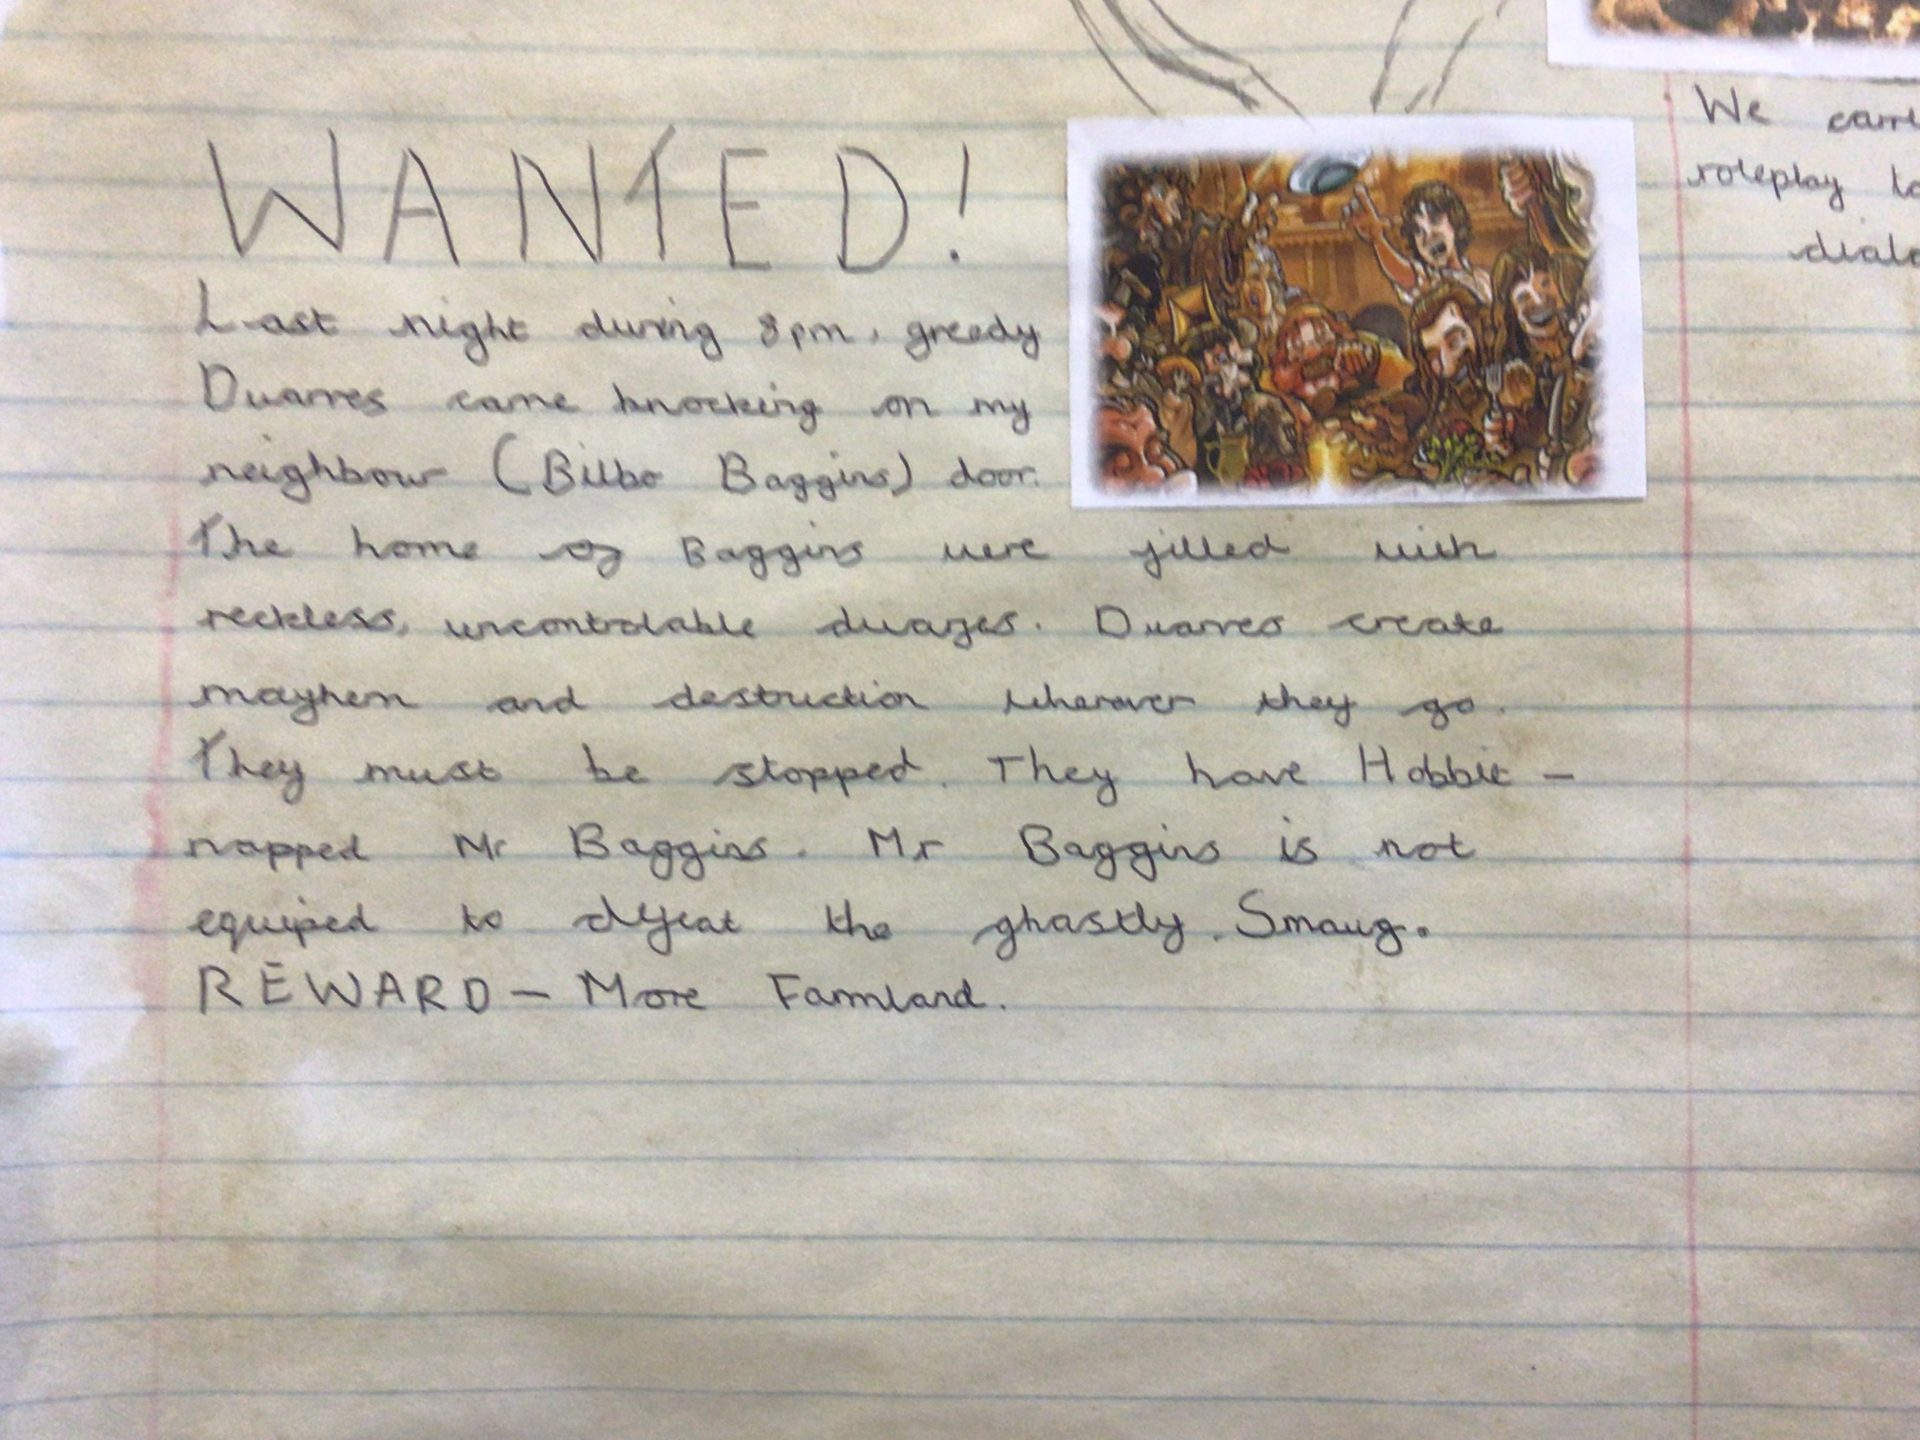 WANTED!
Last night during 8pm, greedy
Dwarves came knocking on my
neighbour (Bilbo Baggins) door.
The home of Baggins were filled with
reckless, uncontrolable dwarfes. Dwarves create
mayhem and destruction wherever they go.
They must be stopped. They have Hobbit -
napped Mr Baggins. Mr Baggins is not
equiped to defeat the ghastly, Smaug.
REWARD - More Farmland.
We
roleplay